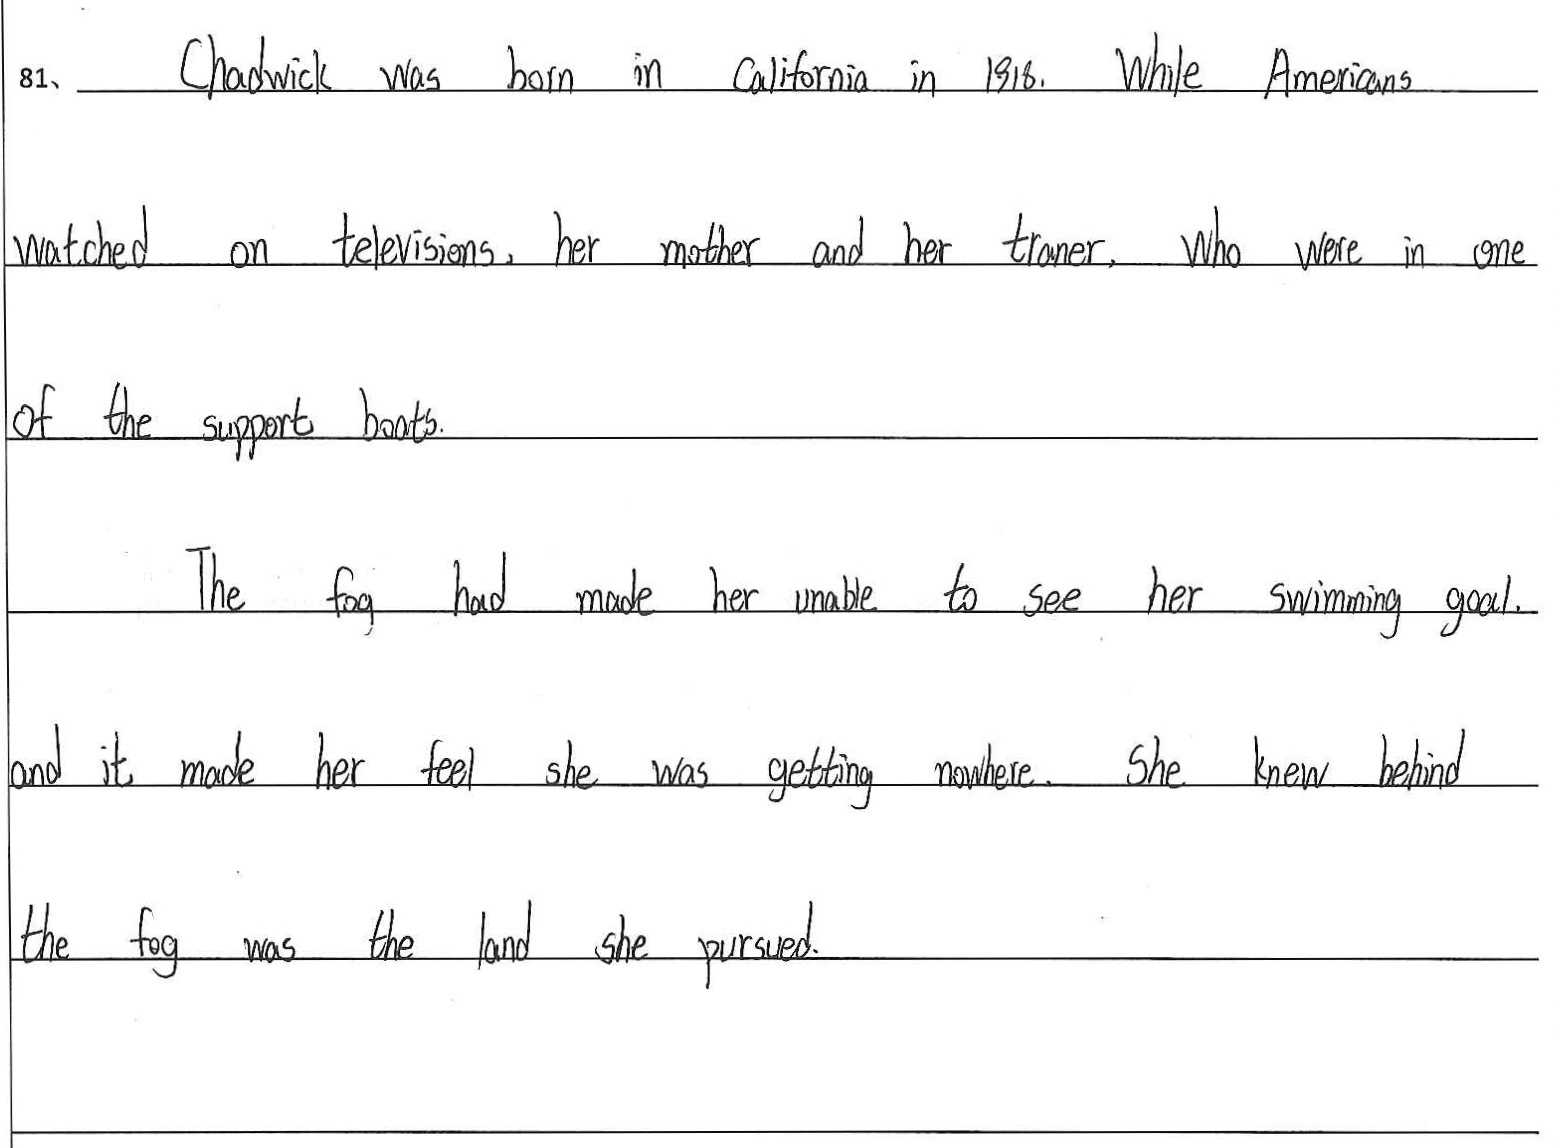 81、 Chadwick was born in California in 1918. While Americans
watched on televisions, her mother and her traner, who were in one
of the support boats.
The fog had made her unable to see her swimming goal.
and it made her feel she was getting nowhere. She knew behind
the fog was the land she pursued.